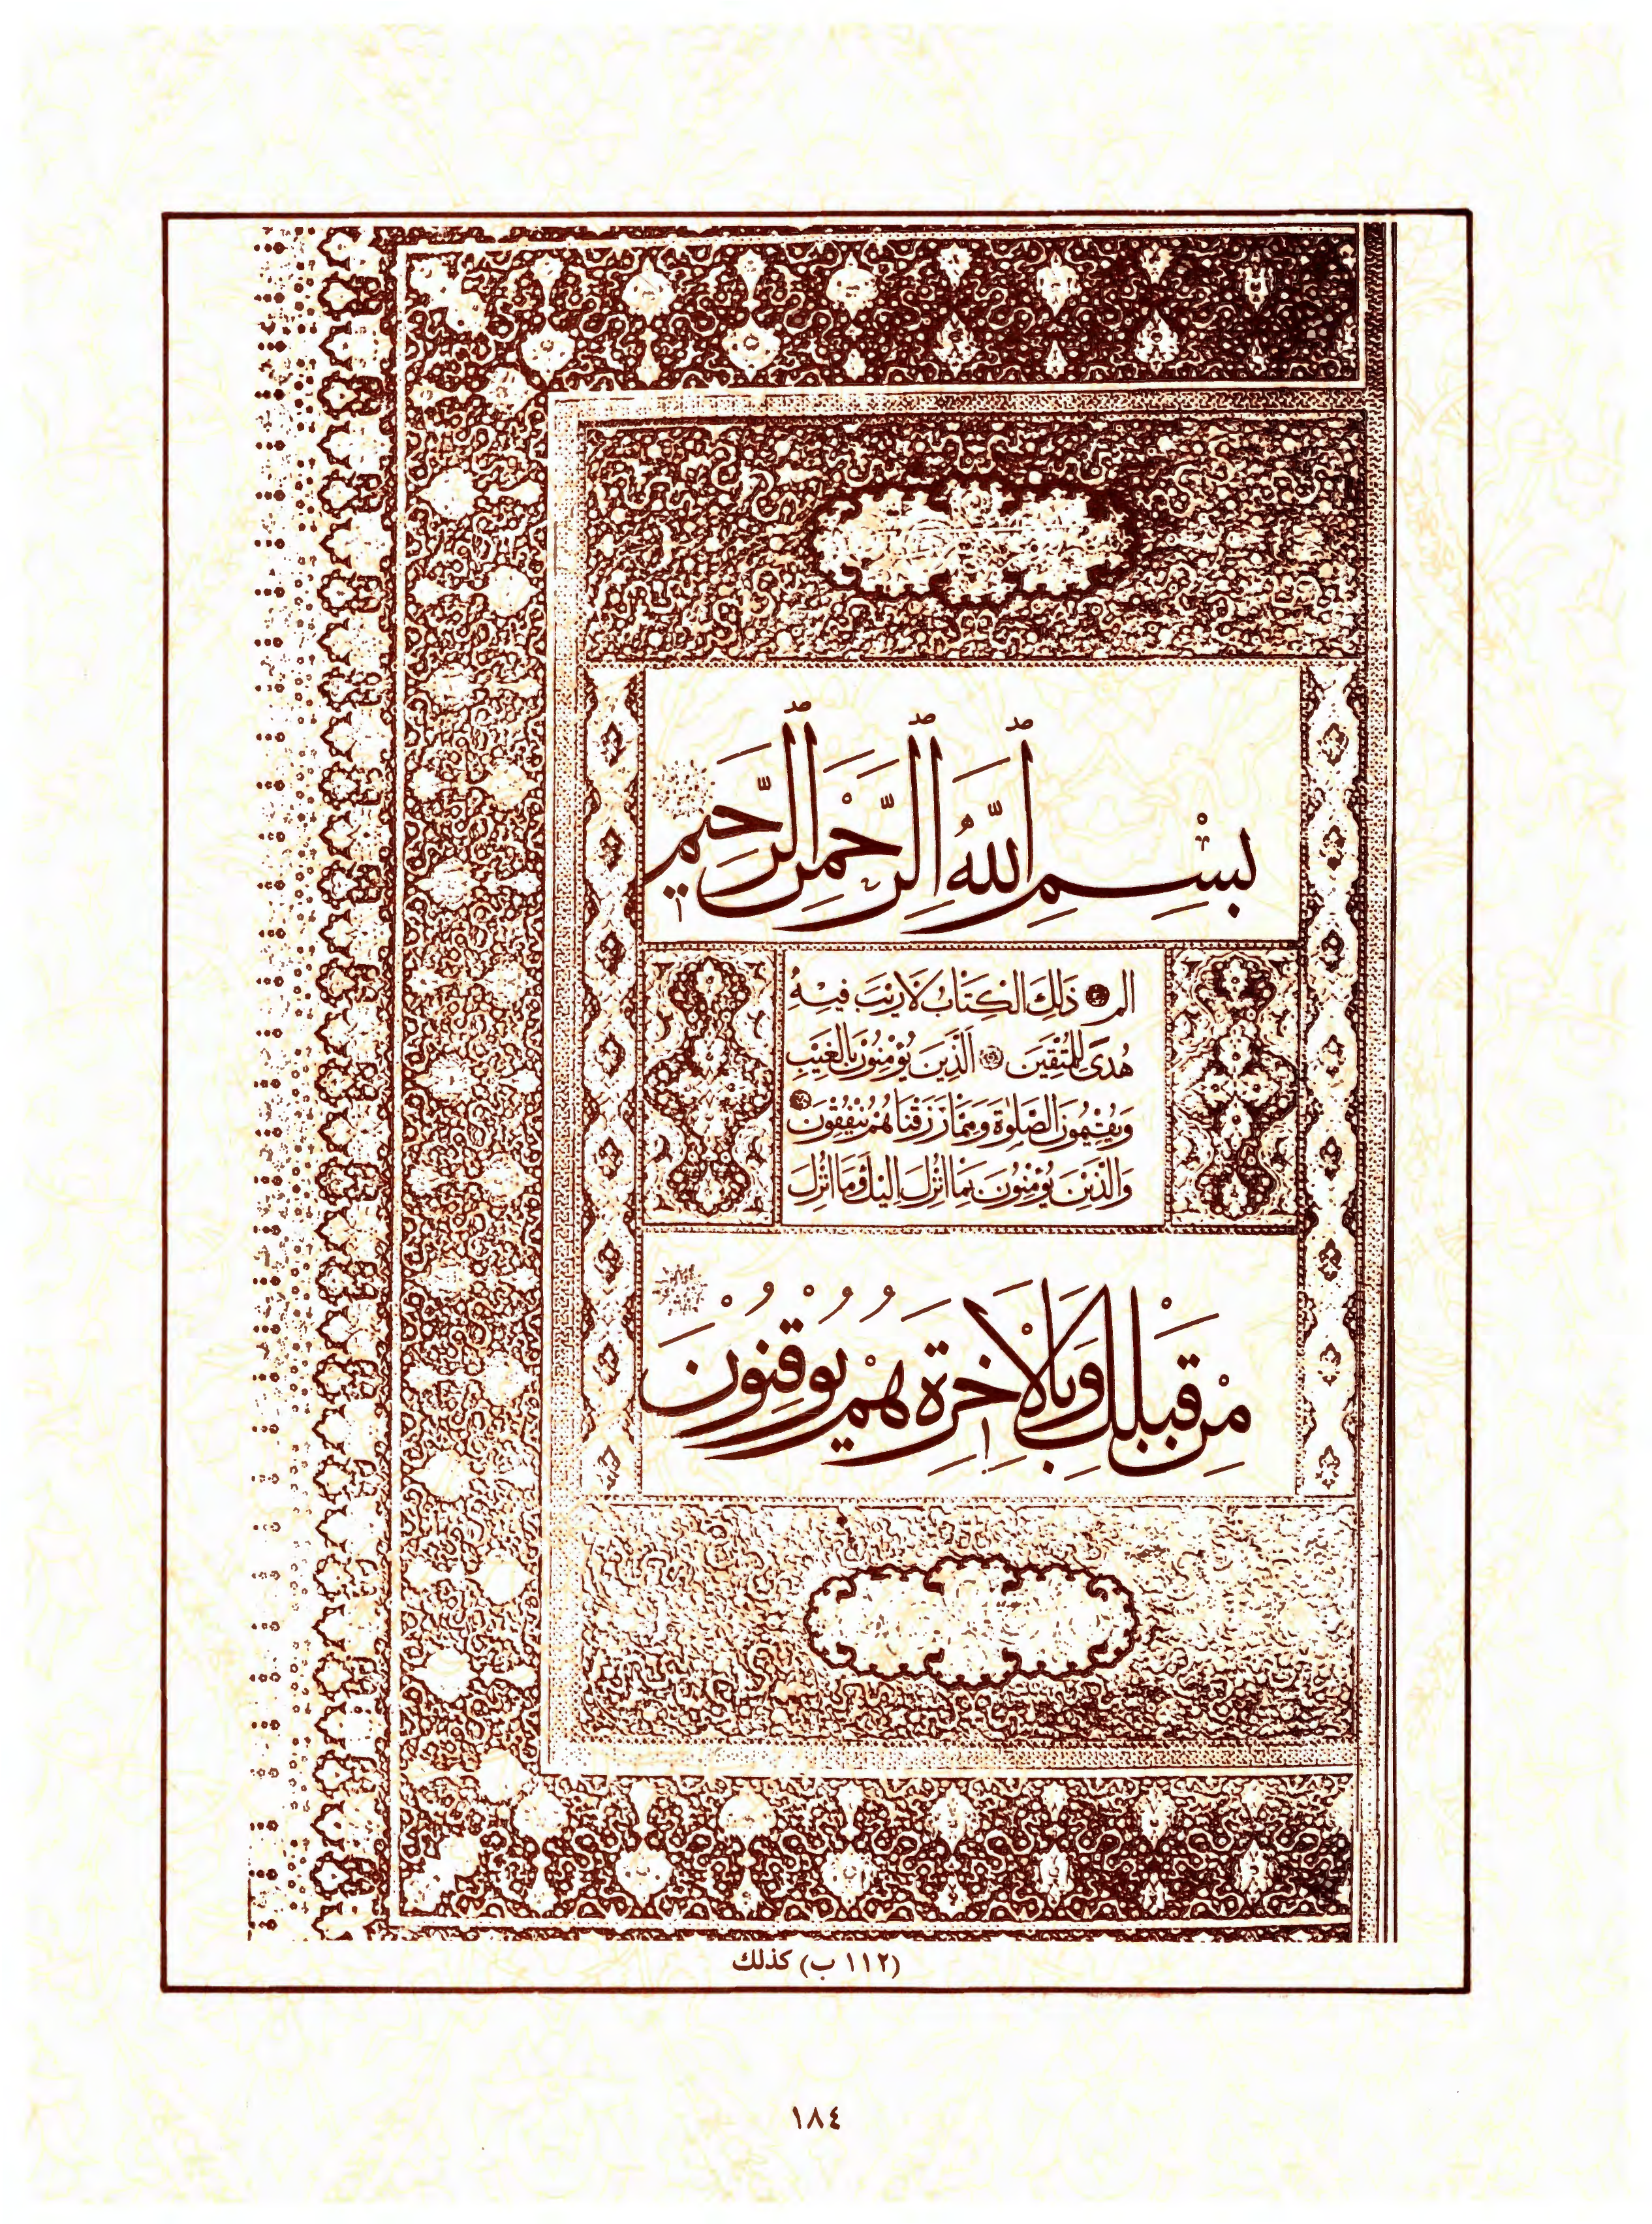 بِسْمِ ٱللَّهِ ٱلرَّحْمٰنِ ٱلرَّحِيمِ
الم ذَلِكَ الْكِتَابُ لَا رَيْبَ فِيهِ
هُدًى لِلْمُتَّقِينَ الَّذِينَ يُؤْمِنُونَ بِالْغَيْبِ
وَيُقِيمُونَ الصَّلٰوةَ وَمِمَّا رَزَقْنَاهُمْ يُنْفِقُونَ
وَالَّذِينَ يُؤْمِنُونَ بِمَا اُنْزِلَ اِلَيْكَ وَمَا اُنْزِلَ
مِنْ قَبْلِكَ وَبِالْاٰخِرَةِ هُمْ يُوقِنُونَ
(١١٢ ب) كذلك
١٨٤